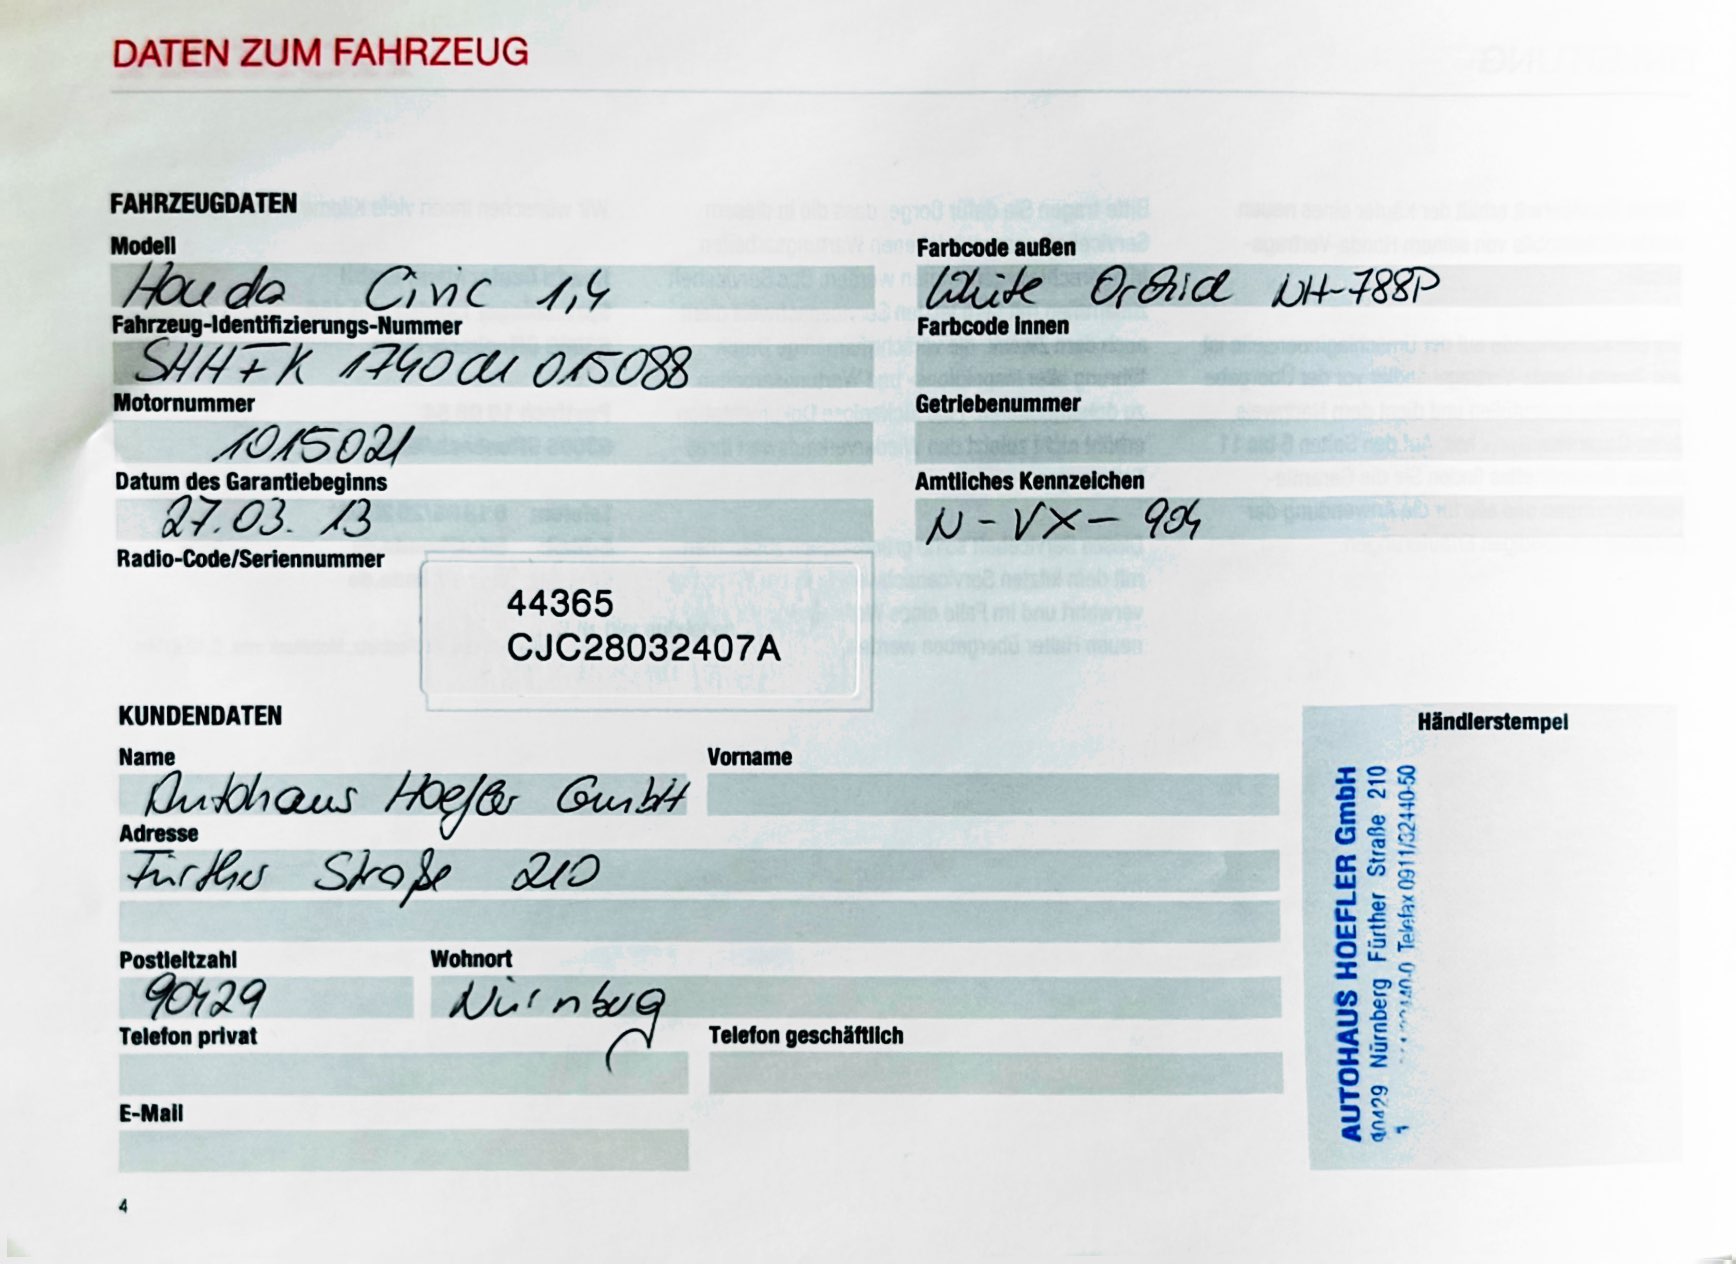 DATEN ZUM FAHRZEUG
FAHRZEUGDATEN
Modell
Honda Civic 1,4
Farbcode außen
White Orchid NH-788P
Fahrzeug-Identifizierungs-Nummer
Farbcode innen
Motornummer
1015021
Getriebenummer
Datum des Garantiebeginns
27.03.13
Amtliches Kennzeichen
N-VX-904
Radio-Code/Seriennummer
44365
CJC28032407A
KUNDENDATEN
Name
Autohaus Hoefler GmbH
Vorname
Adresse
Fürther Straße 210
Postleitzahl
90429
Wohnort
Nürnberg
Telefon privat
Telefon geschäftlich
E-Mail
Händlerstempel
AUTOHAUS HOEFLER GmbH
90429 Nürnberg Fürther Straße 210
Telefax 0911/32440-50
4